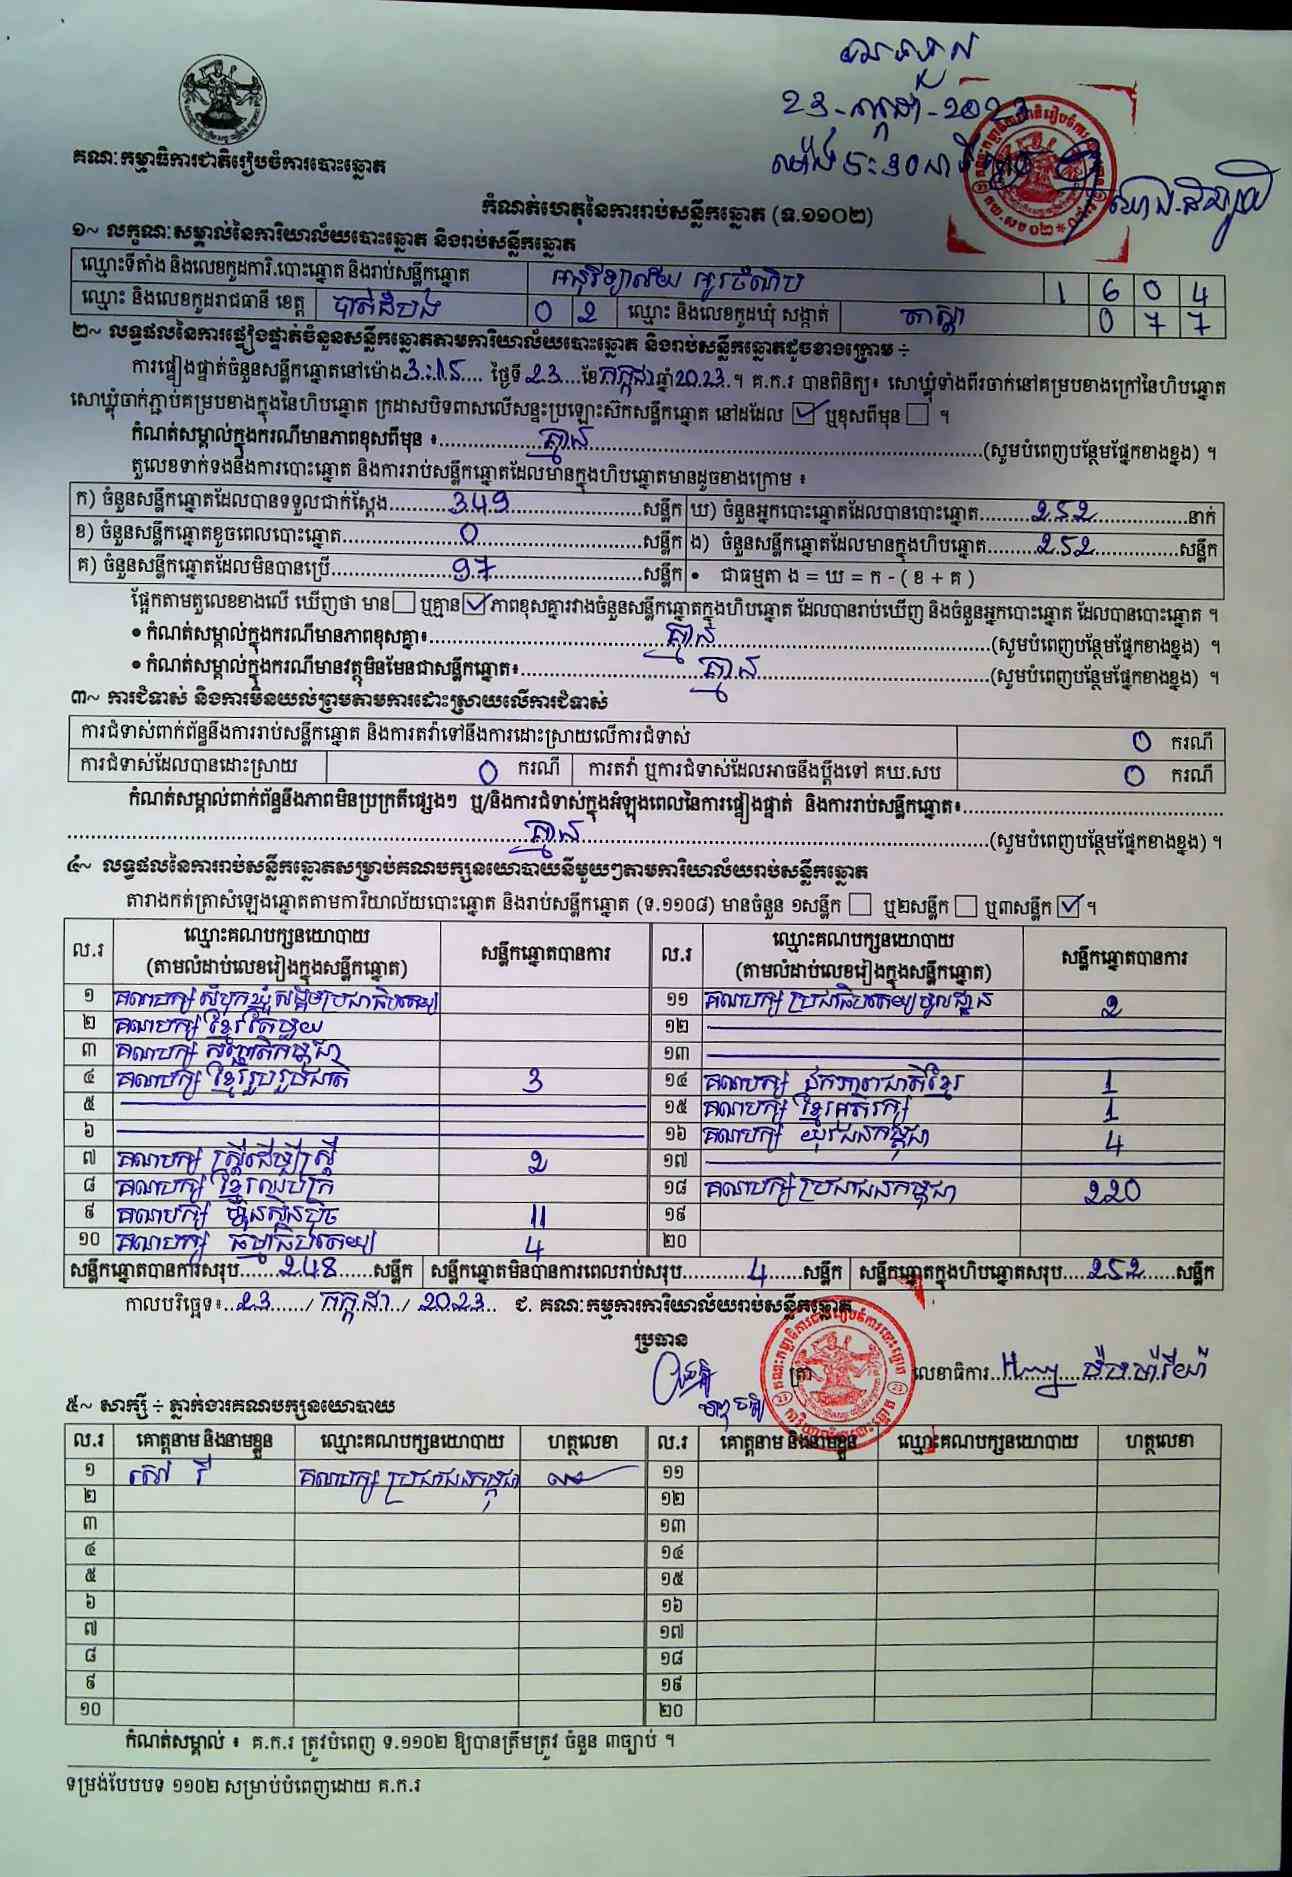 ២3-កក្កដា-២០២3
ម៉ោង ៥:៣០នាទី
គណៈកម្មាធិការជាតិរៀបចំការបោះឆ្នោត
កំណត់ហេតុនៃការរាប់សន្លឹកឆ្នោត (ទ.១១០២)
១~ លក្ខណៈសម្គាល់នៃការិយាល័យបោះឆ្នោត និងរាប់សន្លឹកឆ្នោត
ឈ្មោះទីតាំង និងលេខកូដការិ.បោះឆ្នោត និងរាប់សន្លឹកឆ្នោត អនុវិទ្យាល័យ អូរចំណិប 1 6 0 4
ឈ្មោះ និងលេខកូដរាជធានី ខេត្ត បាត់ដំបង 0 2 ឈ្មោះ និងលេខកូដឃុំ សង្កាត់ តាស្តា 0 7 7
២~ លទ្ធផលនៃការផ្ទៀងផ្ទាត់ចំនួនសន្លឹកឆ្នោតតាមការិយាល័យបោះឆ្នោត និងរាប់សន្លឹកឆ្នោតដូចខាងក្រោម ÷
ការផ្ទៀងផ្ទាត់ចំនួនសន្លឹកឆ្នោតនៅម៉ោង 3:15 ថ្ងៃទី 23 ខែ កក្កដា ឆ្នាំ 2023 ។ គ.ក.រ បានពិនិត្យ៖ សោឃ្លុំទាំងពីរចាក់នៅគម្របខាងក្រៅនៃហិបឆ្នោត
សោឃ្លុំចាក់ភ្ជាប់គម្របខាងក្នុងនៃហិបឆ្នោត ក្រដាសបិទពាសលើសន្ទះប្រឡោះស៊កសន្លឹកឆ្នោត នៅដដែល ☑ ឬខុសពីមុន ☐ ។
កំណត់សម្គាល់ក្នុងករណីមានភាពខុសពីមុន ៖ គ្មាន (សូមបំពេញបន្ថែមផ្នែកខាងខ្នង) ។
តួលេខទាក់ទងនឹងការបោះឆ្នោត និងការរាប់សន្លឹកឆ្នោតដែលមានក្នុងហិបឆ្នោតមានដូចខាងក្រោម ៖
ក) ចំនួនសន្លឹកឆ្នោតដែលបានទទួលជាក់ស្តែង 349 សន្លឹក ឃ) ចំនួនអ្នកបោះឆ្នោតដែលបានបោះឆ្នោត 252 នាក់
ខ) ចំនួនសន្លឹកឆ្នោតខូចពេលបោះឆ្នោត 0 សន្លឹក ង) ចំនួនសន្លឹកឆ្នោតដែលមានក្នុងហិបឆ្នោត 252 សន្លឹក
គ) ចំនួនសន្លឹកឆ្នោតដែលមិនបានប្រើ 97 សន្លឹក • ជាធម្មតា ង = ឃ = ក - ( ខ + គ )
ផ្អែកតាមតួលេខខាងលើ ឃើញថា មាន ☐ ឬគ្មាន ☑ ភាពខុសគ្នារវាងចំនួនសន្លឹកឆ្នោតក្នុងហិបឆ្នោត ដែលបានរាប់ឃើញ និងចំនួនអ្នកបោះឆ្នោត ដែលបានបោះឆ្នោត ។
• កំណត់សម្គាល់ក្នុងករណីមានភាពខុសគ្នា៖ គ្មាន (សូមបំពេញបន្ថែមផ្នែកខាងខ្នង) ។
• កំណត់សម្គាល់ក្នុងករណីមានវត្ថុមិនមែនជាសន្លឹកឆ្នោត៖ គ្មាន (សូមបំពេញបន្ថែមផ្នែកខាងខ្នង) ។
៣~ ការជំទាស់ និងការមិនយល់ព្រមតាមការដោះស្រាយលើការជំទាស់
ការជំទាស់ពាក់ព័ន្ធនឹងការរាប់សន្លឹកឆ្នោត និងការតវ៉ាទៅនឹងការដោះស្រាយលើការជំទាស់ 0 ករណី
ការជំទាស់ដែលបានដោះស្រាយ 0 ករណី ការតវ៉ា ឬការជំទាស់ដែលអាចនឹងប្តឹងទៅ គឃ.សប 0 ករណី
កំណត់សម្គាល់ពាក់ព័ន្ធនឹងភាពមិនប្រក្រតីផ្សេងៗ ឬ/និងការជំទាស់ក្នុងអំឡុងពេលនៃការផ្ទៀងផ្ទាត់ និងការរាប់សន្លឹកឆ្នោត៖
គ្មាន (សូមបំពេញបន្ថែមផ្នែកខាងខ្នង) ។
៤~ លទ្ធផលនៃការរាប់សន្លឹកឆ្នោតសម្រាប់គណបក្សនយោបាយនីមួយៗតាមការិយាល័យរាប់សន្លឹកឆ្នោត
តារាងកត់ត្រាសំឡេងឆ្នោតតាមការិយាល័យបោះឆ្នោត និងរាប់សន្លឹកឆ្នោត (ទ.១១០៨) មានចំនួន ១សន្លឹក ☐ ឬ២សន្លឹក ☐ ឬ៣សន្លឹក ☑ ។
ល.រ ឈ្មោះគណបក្សនយោបាយ (តាមលំដាប់លេខរៀងក្នុងសន្លឹកឆ្នោត) សន្លឹកឆ្នោតបានការ ល.រ ឈ្មោះគណបក្សនយោបាយ (តាមលំដាប់លេខរៀងក្នុងសន្លឹកឆ្នោត) សន្លឹកឆ្នោតបានការ
១ គណបក្ស សំបុកឃ្មុំសង្គមប្រជាធិបតេយ្យ ១១ គណបក្ស ប្រជាធិបតេយ្យមូលដ្ឋាន 2
២ គណបក្ស ខ្មែរតែមួយ ១២
៣ គណបក្ស សញ្ជាតិកម្ពុជា ១៣
៤ គណបក្ស ខ្មែររួបរួមជាតិ 3 ១៤ គណបក្ស ឯកភាពជាតិខ្មែរ 1
៥ ១៥ គណបក្ស ខ្មែរអភិរក្ស 1
៦ ១៦ គណបក្ស យុវជនកម្ពុជា 4
៧ គណបក្ស ស្ត្រីដើម្បីស្ត្រី 2 ១៧
៨ គណបក្ស ខ្មែរឈប់ក្រ ១៨ គណបក្ស ប្រជាជនកម្ពុជា 220
៩ គណបក្ស ហ្វ៊ុនស៊ិនប៉ិច 11 ១៩
១០ គណបក្ស ធម្មាធិបតេយ្យ 4 ២០
សន្លឹកឆ្នោតបានការសរុប 248 សន្លឹក សន្លឹកឆ្នោតមិនបានការពេលរាប់សរុប 4 សន្លឹក សន្លឹកឆ្នោតក្នុងហិបឆ្នោតសរុប 252 សន្លឹក
កាលបរិច្ឆេទ៖ 23 / កក្កដា / 2023 ជ. គណៈកម្មការការិយាល័យរាប់សន្លឹកឆ្នោត
ប្រធាន
ត្រា លេខាធិការ
៥~ សាក្សី ÷ ភ្នាក់ងារគណបក្សនយោបាយ
ល.រ គោត្តនាម និងនាមខ្លួន ឈ្មោះគណបក្សនយោបាយ ហត្ថលេខា ល.រ គោត្តនាម និងនាមខ្លួន ឈ្មោះគណបក្សនយោបាយ ហត្ថលេខា
១ សៅ រី គណបក្ស ប្រជាជនកម្ពុជា ១១
២ ១២
៣ ១៣
៤ ១៤
៥ ១៥
៦ ១៦
៧ ១៧
៨ ១៨
៩ ១៩
១០ ២០
កំណត់សម្គាល់ ៖ គ.ក.រ ត្រូវបំពេញ ទ.១១០២ ឱ្យបានត្រឹមត្រូវ ចំនួន ៣ច្បាប់ ។
ទម្រង់បែបបទ ១១០២ សម្រាប់បំពេញដោយ គ.ក.រ